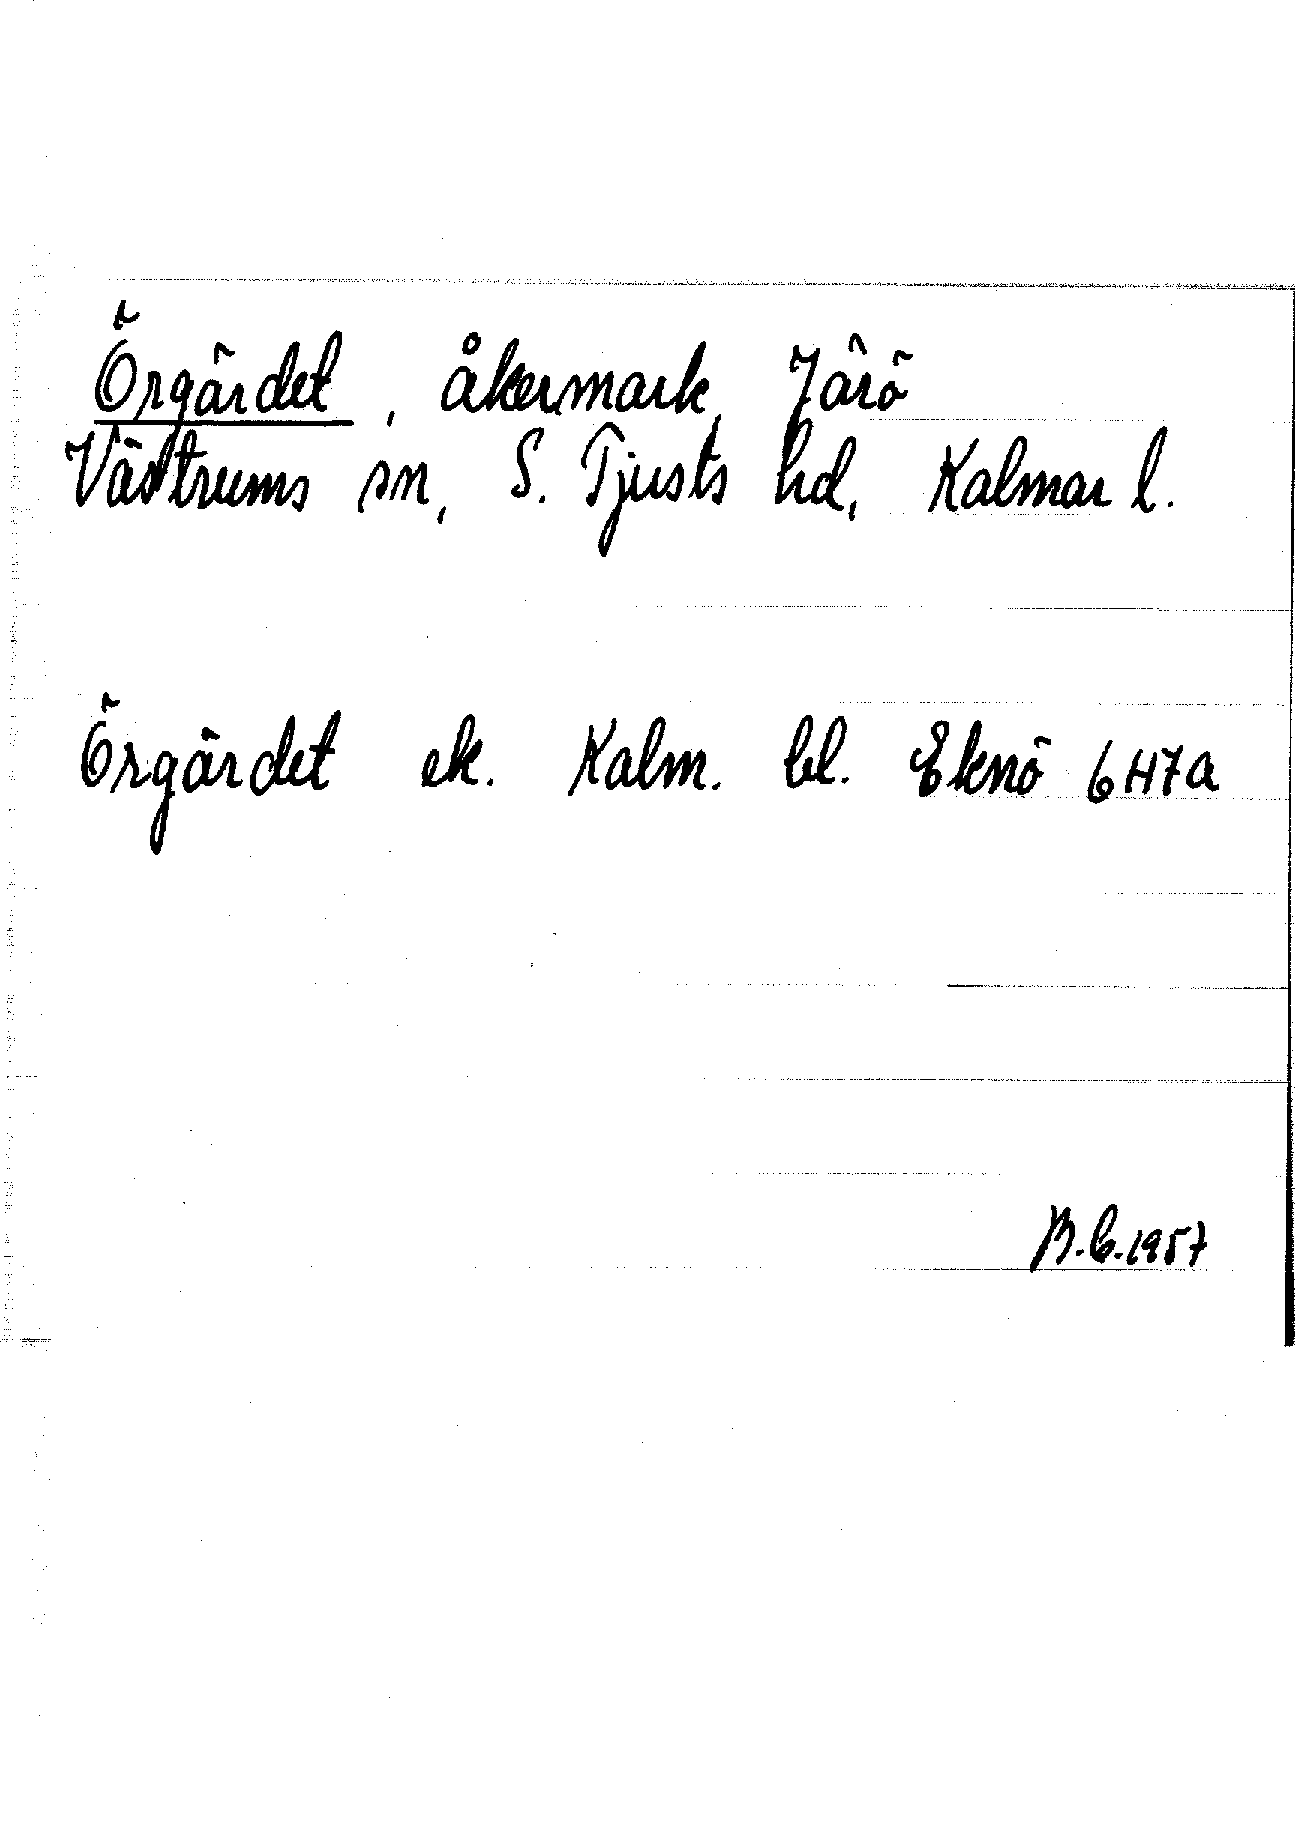 Örgärdet, åkermark, Jårö
Västrums sn, S. Tjusts hd, Kalmar l.
Örgärdet ek. Kalm. bl. Eknö 6H7a
B.C.1957